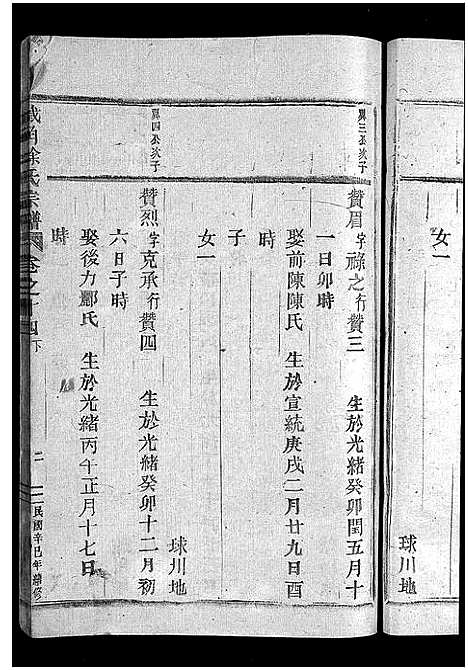 女一
球川地
巽三公次子
贊眉字祿之行贊三 生於光緒癸卯閏五月十
一日卯時
娶前陳陳氏 生於宣統庚戌二月廿九日酉
時
子
女一
球川地
巽四公次子
贊烈字克承行贊四 生於光緒癸卯十二月初
六日子時
娶後力鄭氏 生於光緒丙午正月十七日
時
徐氏宗譜 卷之十四下 二 民國辛巳年續修